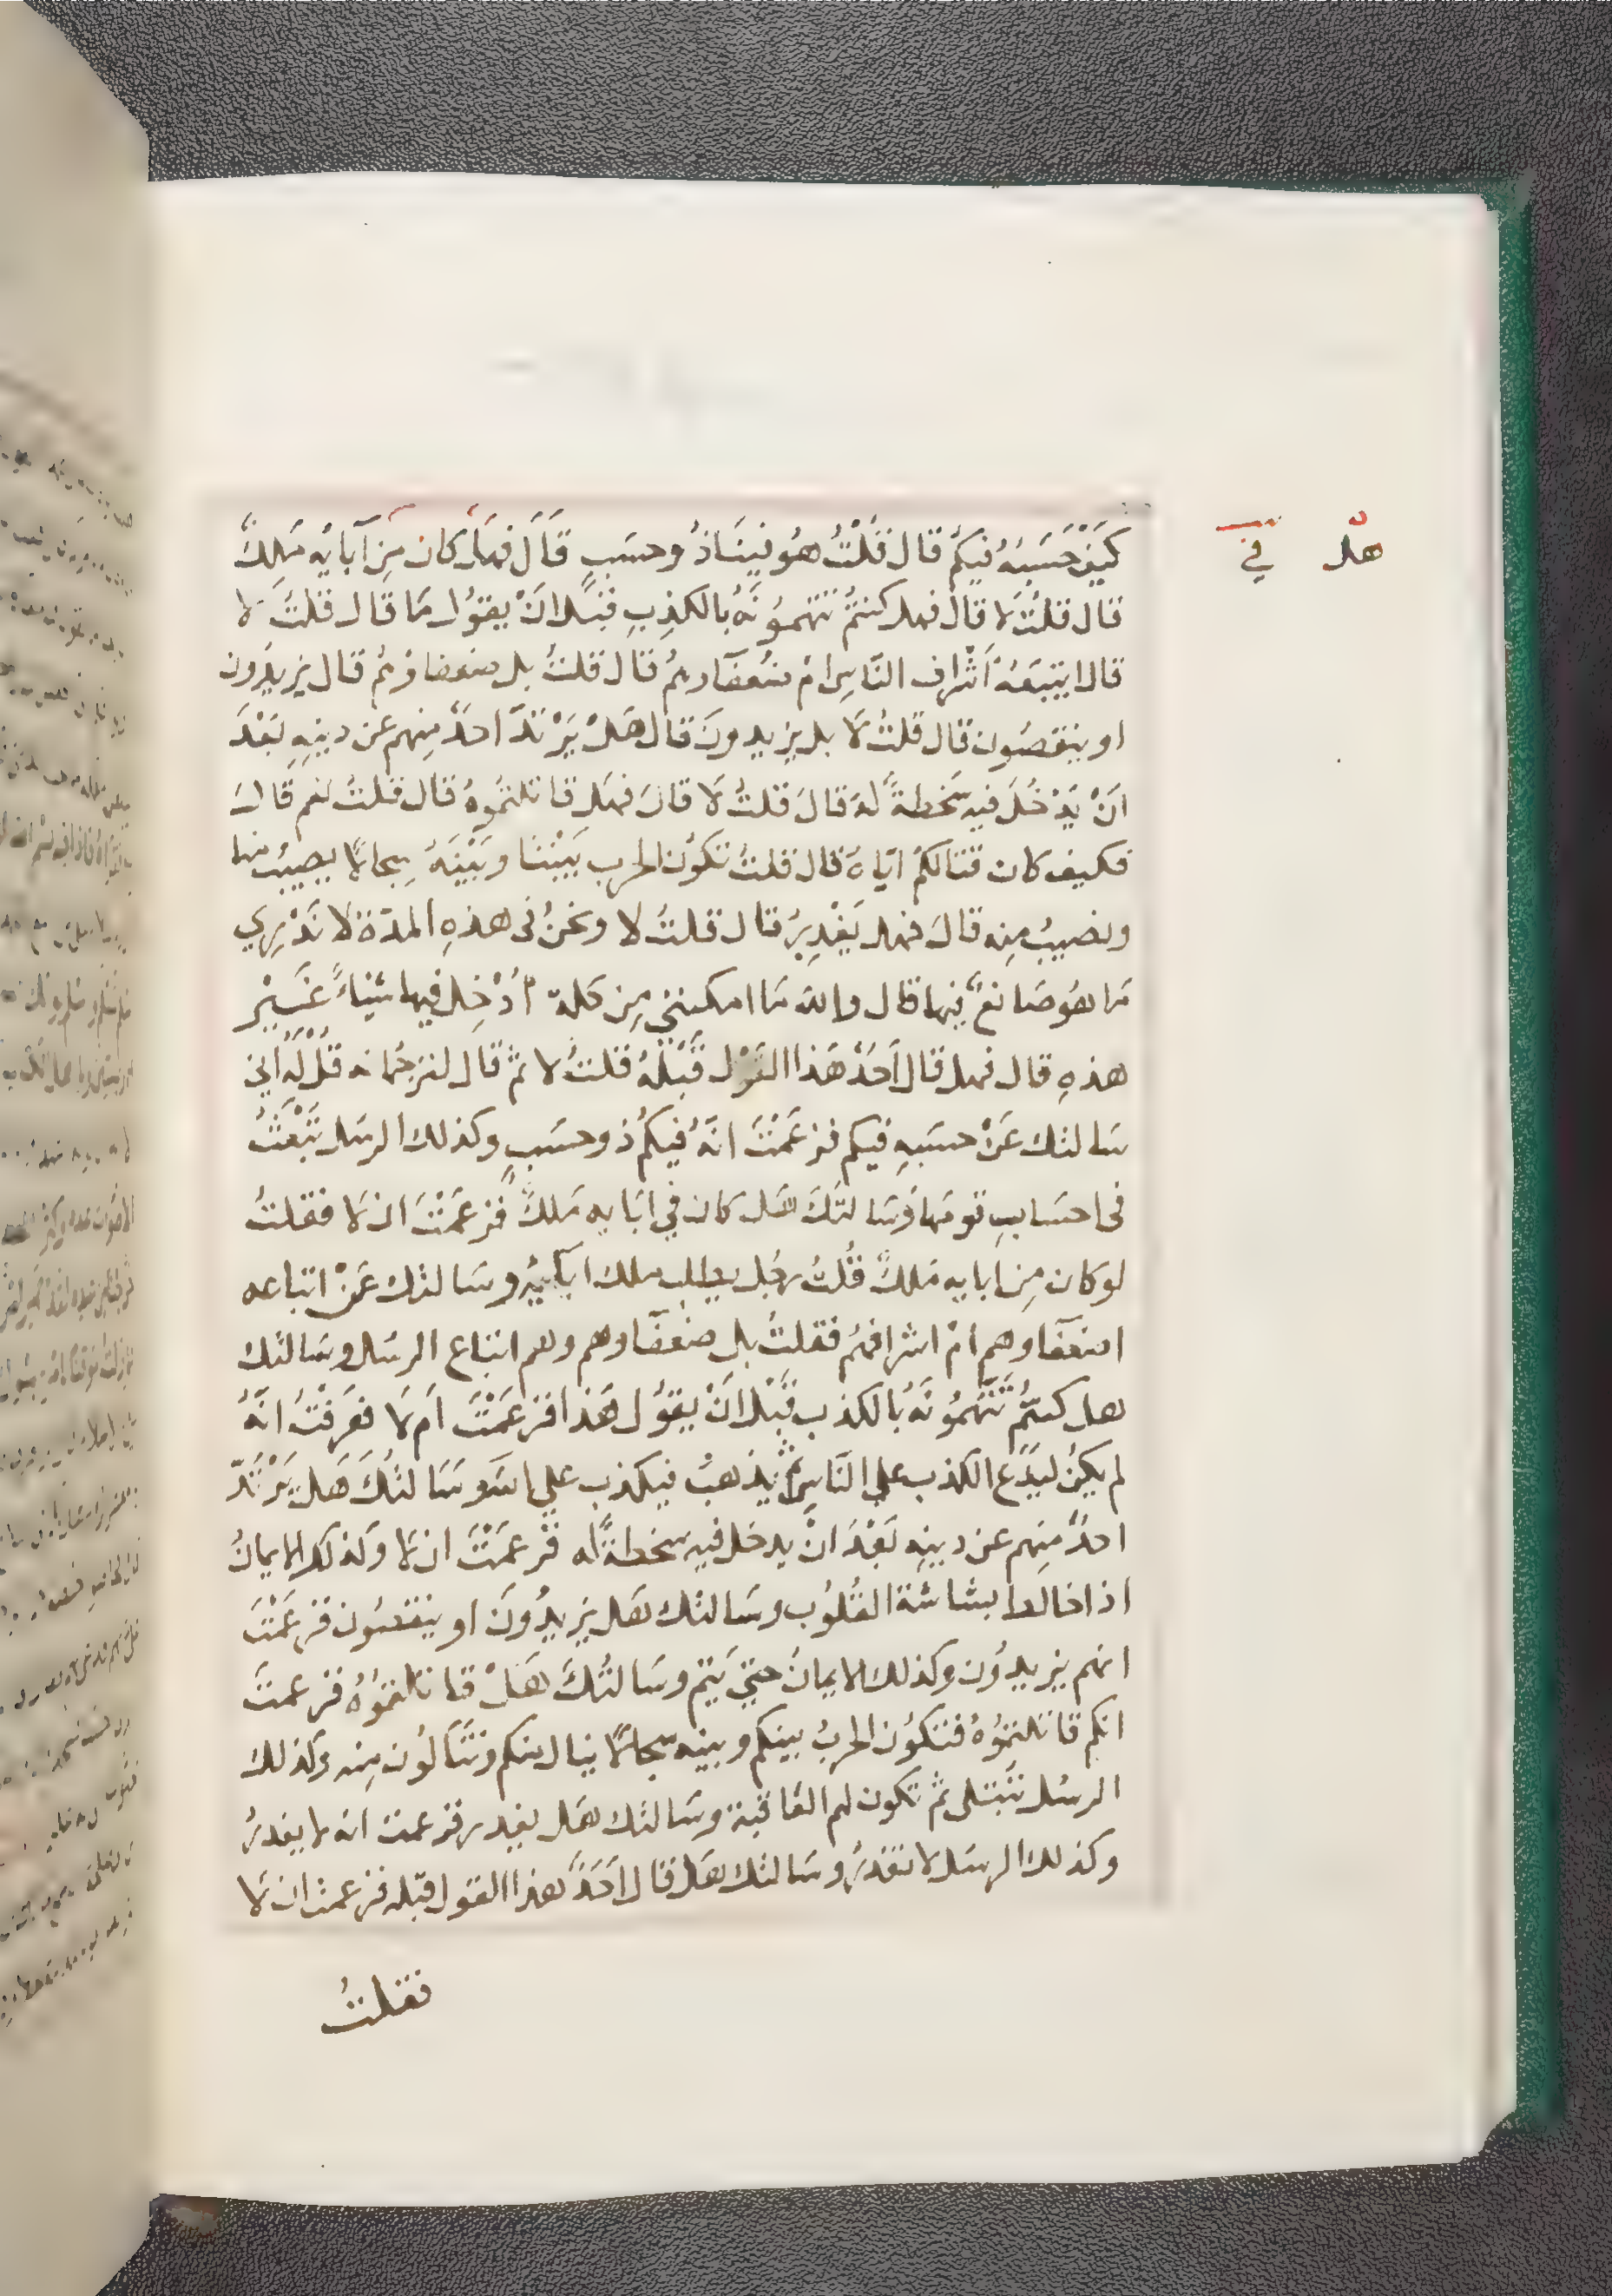 كَيْفَ حَسَبُهُ فيكُمْ قال قُلْتُ هُو فينَا ذُو حسَبٍ قَالَ فهَل كان مِن آبايِه مَلِكٌ
هل في
قال قلتُ لَا قال فهل كنتُمْ تتهمُونَهُ بالكذِبِ قَبْلَ انَْ يقوُل مَا قال قلتُ لا
قال ايتبَعُهُ اَشْراف النَّاسِ امْ ضُعَفَآوهمُ قال قلتُ بل ضعفاوهُمُ قال يزيدُون
او ينقصُون قال قلتُ لَا بل يزيدونَ قال هَلْ يَرْتَدُّ احدٌ مِنهم عن دينِهِ بَعْدَ
انَْ يَدْخُلَ فيهِ سَخطةً لَهُ قالَ قلتُ لَا قالَ فهَل قاتلتمُوهُ قال قلتُ نعم قالَ
فكيف كان قتالكُمْ ايّاهُ قال قلتُ تكوُن الحرب بَيْننَا وبَيْنَهُ سِجالًا يصيبُ منا
ونصيبُ مِنه قالَ فهل يَغْدِرُ قال قلتُ لا ونحنُ فى هذهِ المدّة لا نَدْرِي
مَا هُو صَانعٌ فيها قال والله مَا امكنني مِن كلمة اُدْخِل فيها شيئاً غَيْر
هذهِ قال فهل قال اَحَدٌ هَذا القوْل قَبْلهُ قلتُ لا ثمَّ قال لترجُمانه قُلْ لَهُ اني
سَالتك عَنْ حسَبهِ فيكم فزعَمْتَ انّهُ فيكُمْ ذو حسَبٍ وكذلك الرسل تُبْعَثُ
فى احسَابِ قومَها وسَالتكَ هَل كان في ابَايه مَلكٌ فزعَمْتَ ان لَا فقلتُ
لو كان مِن ابايه مَلكٌ قُلتُ رجُل يطلب ملك ابَآيِهِ وسَالتك عَنْ اتباعه
اضعفَاوهم امْ اشرافهُمْ فقلتُ بل ضعفَاوهم وهم اتباع الرسُل وسَالتك
هل كنتُمْ تَتّهِمُونَهُ بالكذب قَبْل انَْ يقوُل هَذا فزعَمْتَ اَم لَا فعَرفْتُ انّهُ
لم يكُنْ ليَدَعَ الكذب علي النَّاسِ ثمَّ يذهبُ فيكذب علي الله وسَالتُكَ هَل يَرْتَدُّ
احدٌ مِنهم عن دينِه بَعْدَ انْ يدخل فيهِ سخطةً له فزْعمْتَ ان لا وكذلك الايمانُ
اذا خالط بشاشة القُلوُب وسَالتك هَل يزيدُونَ او ينقصُون فزعَمْتَ
انهم يزيدوُن وكذلك الايمانُ حتيّ يَتِم وسَالتُكَ هَلْ قاتلتمُوُهُ فزعمتَ
انكم قاتلتموُهُ فتكوُن الحربُ بينكم وبينه سِجالًا ينال منكم وتنَالوُن مِنه وكذلك
الرسُل تُبتَلى ثمَّ تكون لهم العَاقبة وسَالتك هَل يغدر فزعمت انه لا يغدرُ
وكذلك الرسَل لا تغدرُ وسَالتك هَل قال اَحَدٌ هذا القول قبله فزعمتَ ان لَا
فقلتُ